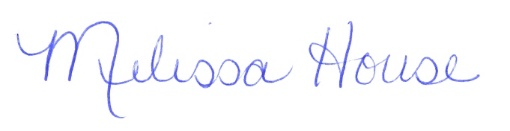 Melissa House